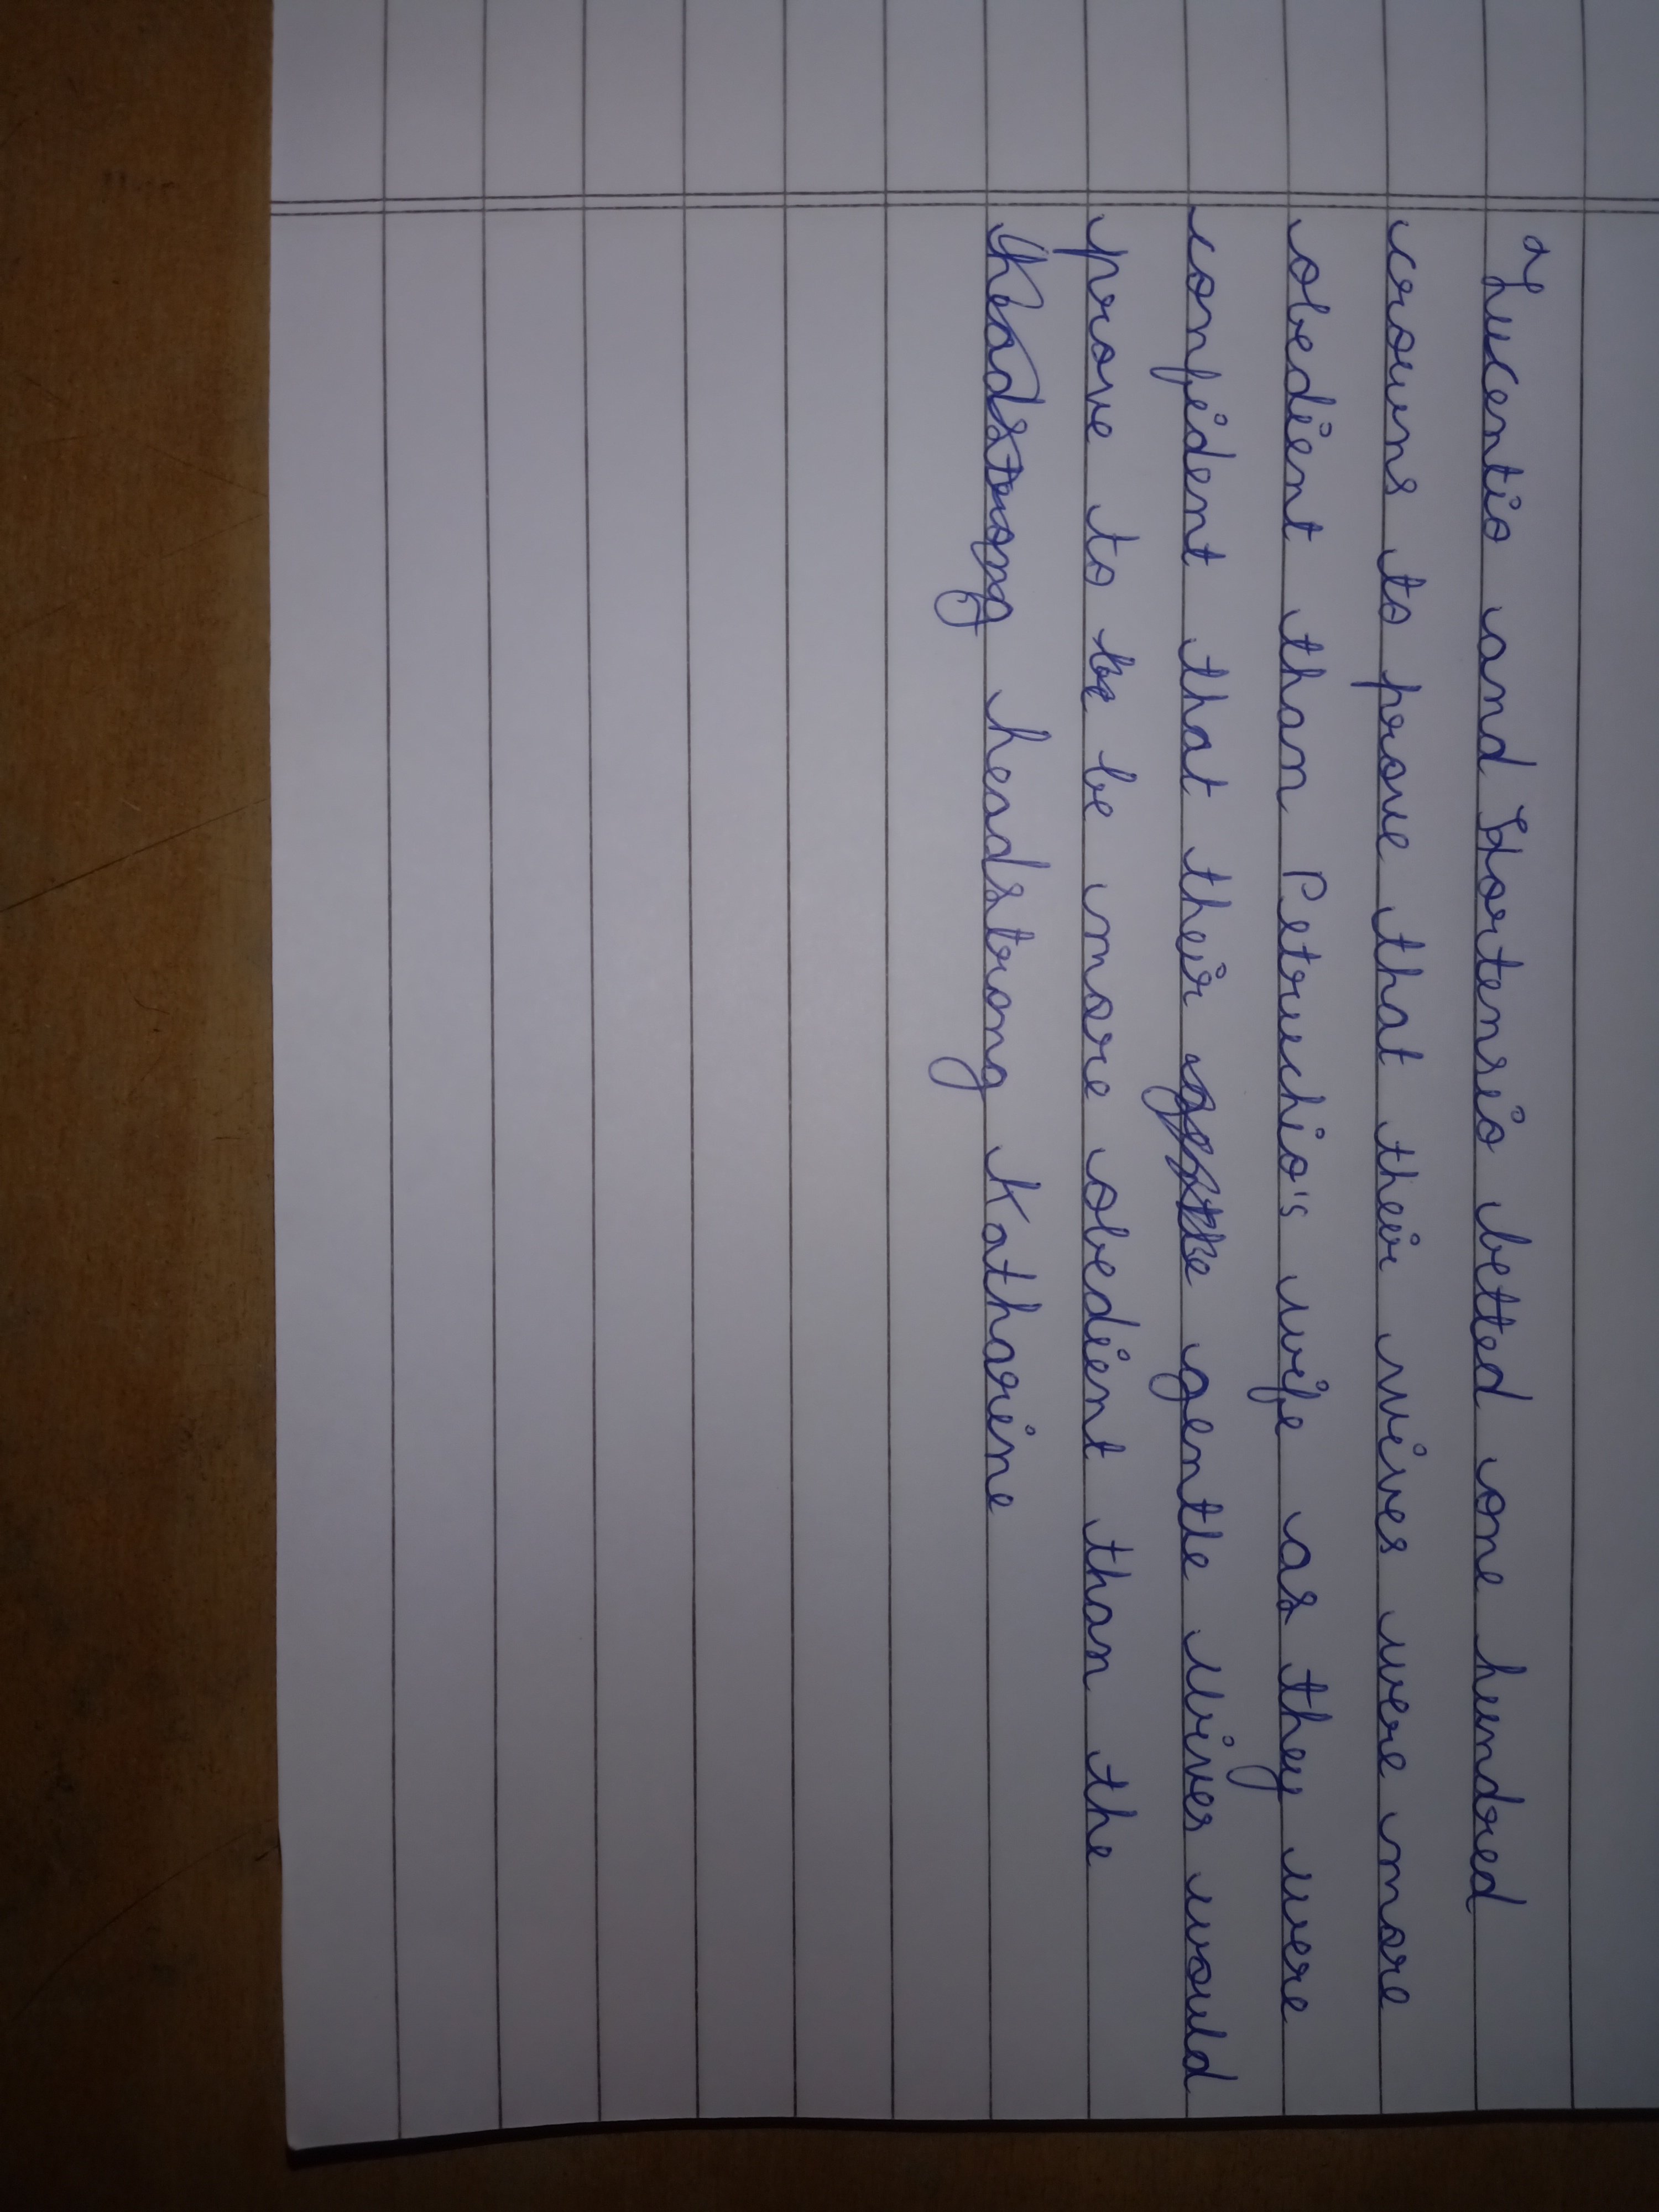 Lucentio and Hortensio betted one hundred
crowns to prove that their wives were more
obedient than Petruchio's wife as they were
confident that their gentle wives would
prove to be be more obedient than the
headstrong headstrong Katharine